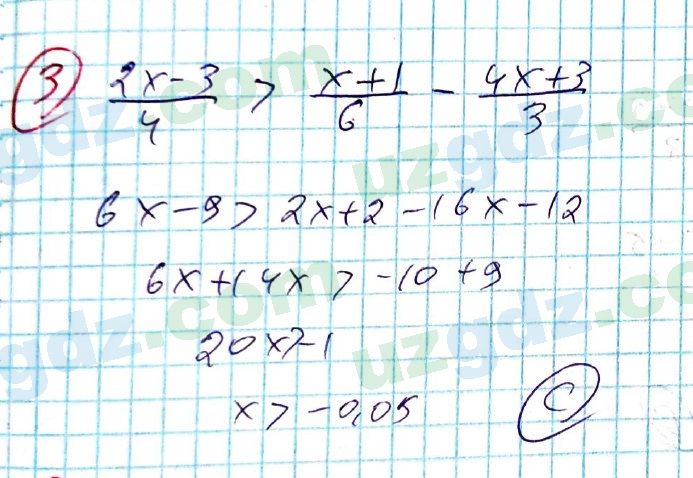 3 (2x-3)/4 > (x+1)/6 - (4x+3)/3
6x-9 > 2x+2-16x-12
6x+14x > -10+9
20x>-1
x > -0,05
C
uzgdz.com
uzgdz.com
uzgdz.com
uzgdz.com